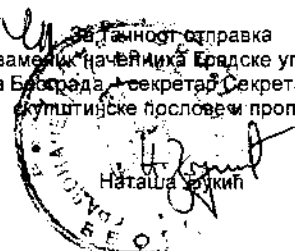 За тачност отправка
заменик начелника Градске уп
а Београда – секретар Секрета
скупштинске послове и проп
Наташа
БЕО